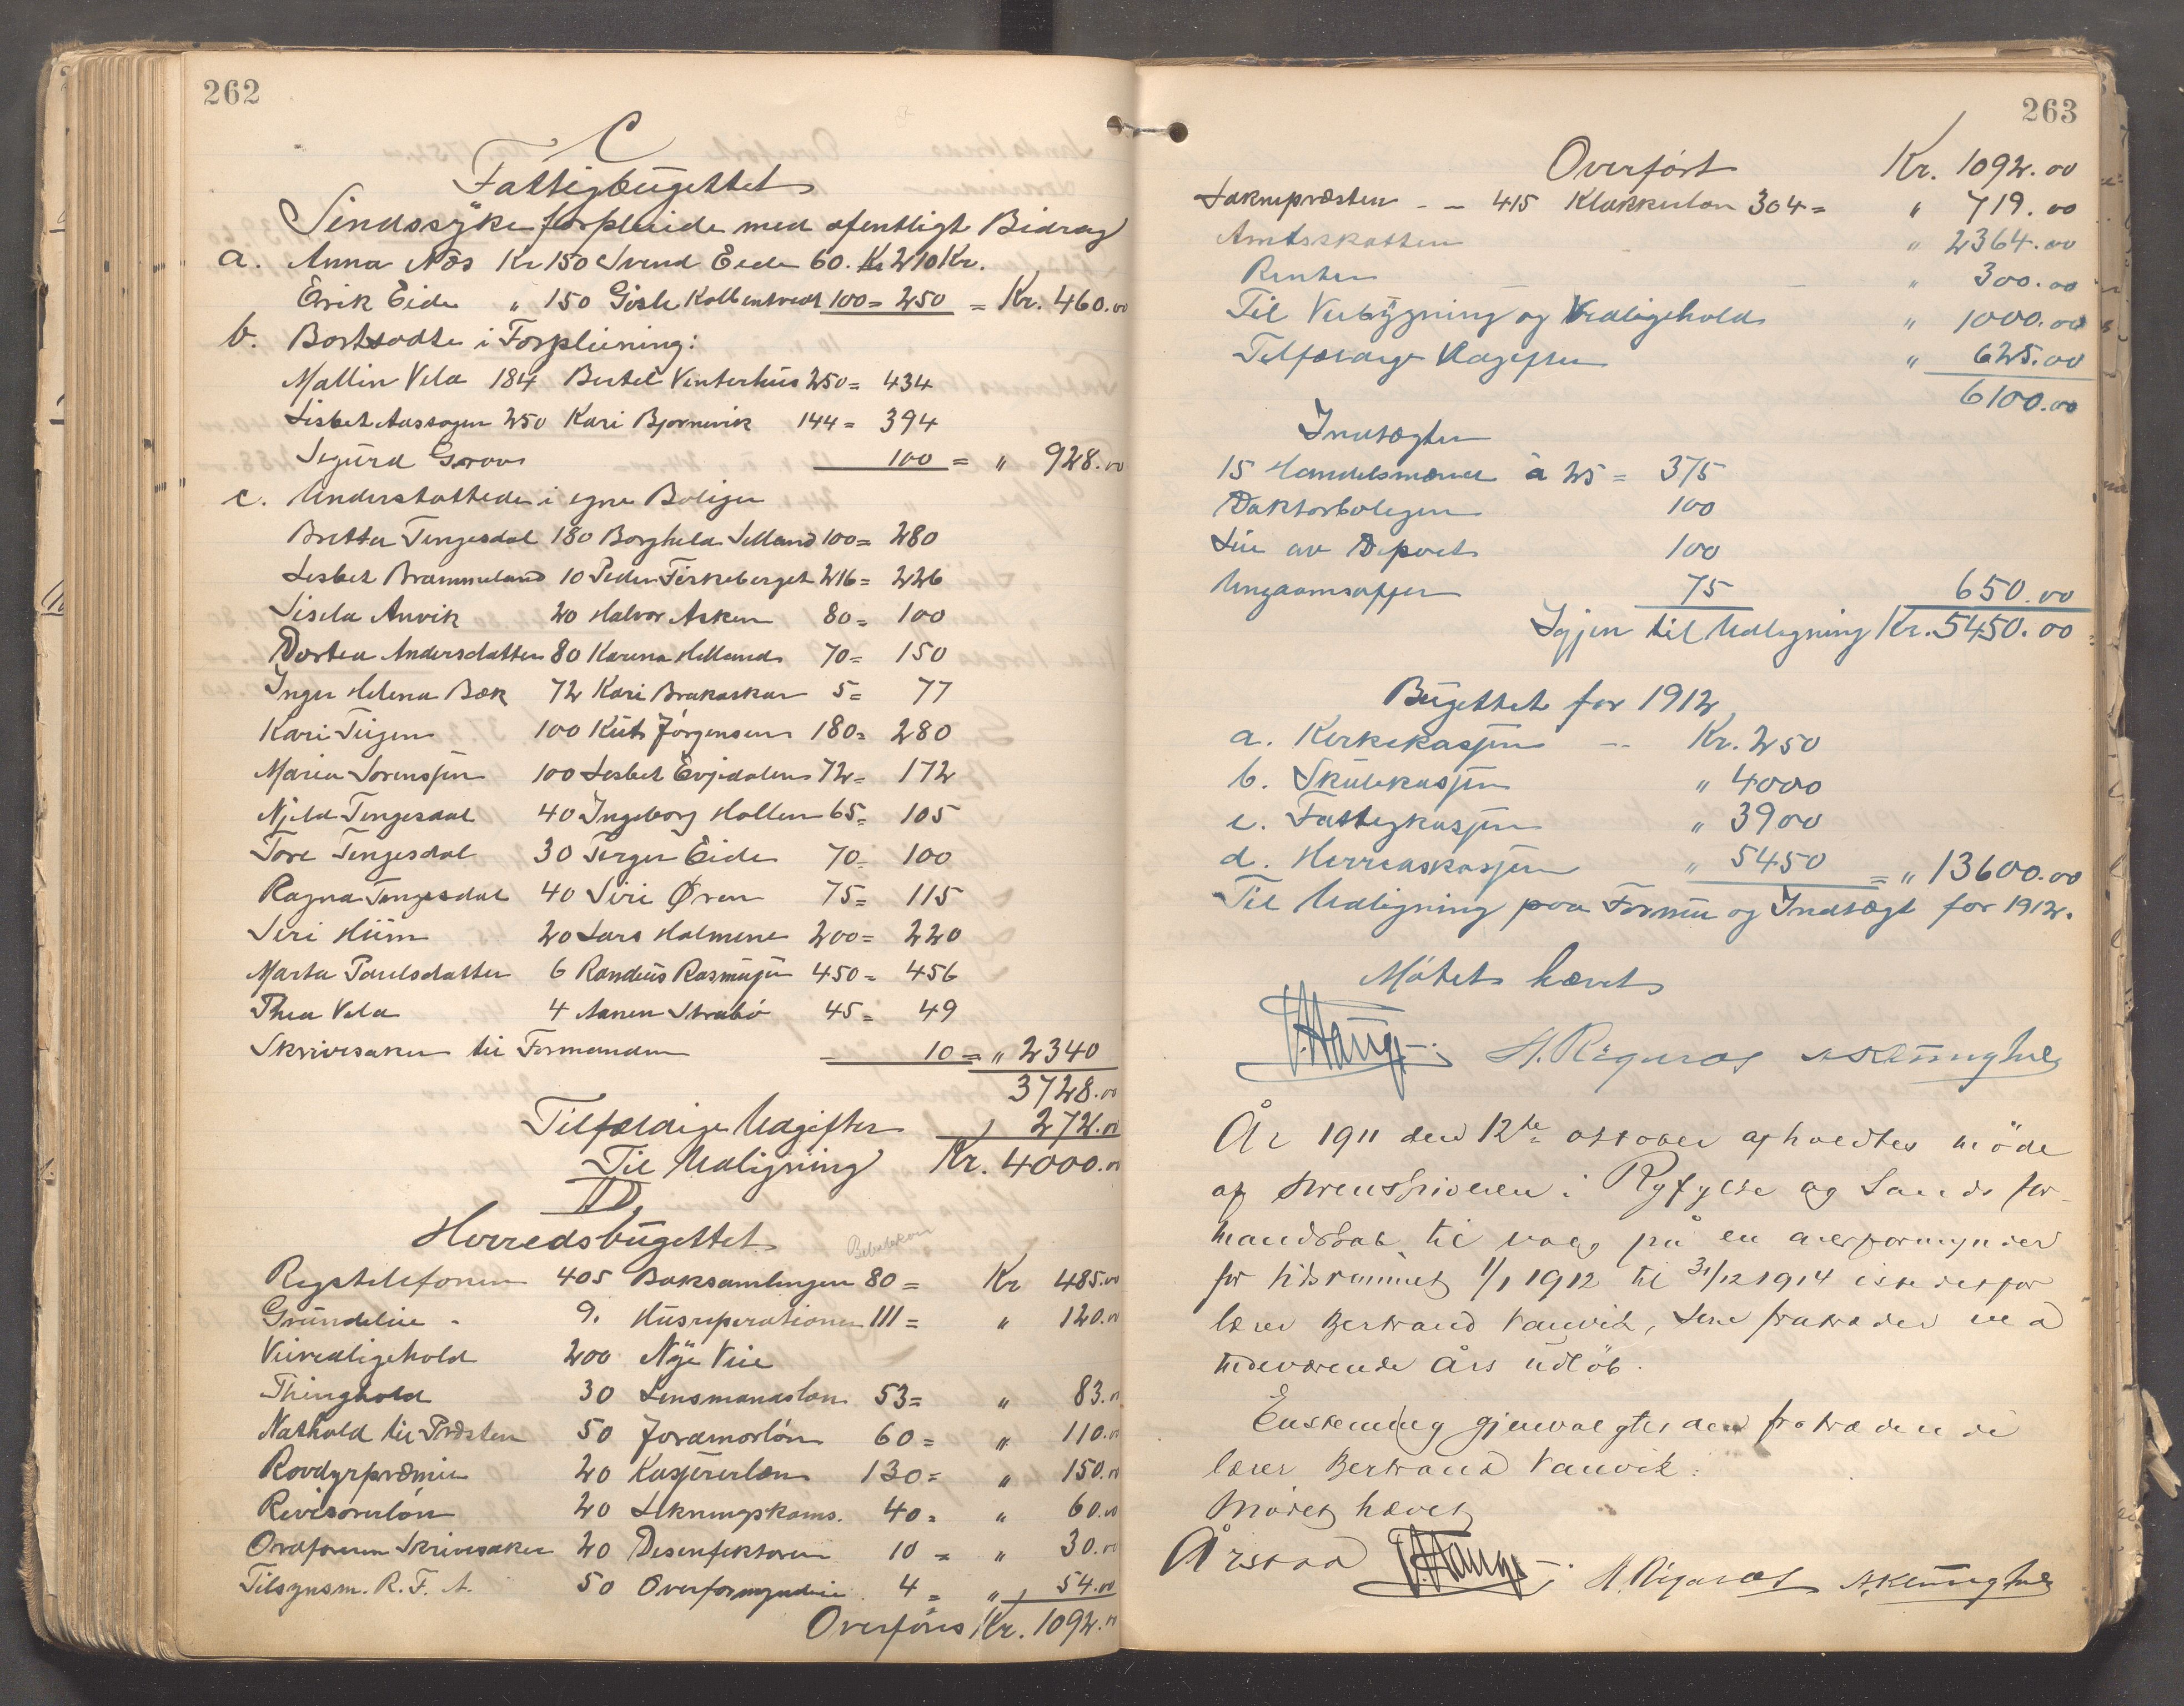 262
C
Fattigbügettet
Sindssÿke forpleide med ofentligt Bidrag
a. Anna Nös Kr 150 Svend Eide 60. Kr 210 Kr.
Erik Eide " 150 Gisle Kolbentvedt 100 = 250 = Kr. 460.00
b. Bortsodte i Forpleining:
Mallin Vela 184 Bertel Vinterhüs 250 = 434
Lisbet Aassogen 250 Kari Bjornevik 144 = 394
Sigürd Groov 100 = " 928.00
c. Understøttede i egne Boliger
Britta Tengesdal 180 Borghela Selland 100 = 280
Lisbet Brommeland 10 Peder Ferkeberget 216 = 226
Sisela Anvik 20 Halvor Asken 80 = 100
Dortea Andersdatter 80 Karina Helland 70 = 150
Inger Helena Bæk 72 Kari Brakaskar 5 = 77
Kari Teigen 100 Jörgensen 180 = 280
Maria Sorensjen 100 Lisbet Evjedalen 72 = 172
Njeld Tengesdal 40 Ingeborg Hollen 65 = 105
Tore Tengesdal 30 Torger Eide 70 = 100
Ragna Tengesdal 40 Siri Øren 75 = 115
Siri Hiim 20 Lars Holmene 200 = 220
Marta Poulsdatter 6 Randeüs Rasmusjen 450 = 456
Thea Vela 4 Aanen Strabö 45 = 49
Skrivesaker til Formanden 10 = " 2340
3728.00
Tilfældige Udgifter 272.00
Til Udligning Kr. 4000.00
D
Herredsbügettet
Rigstelefonen 405 Boksamlingen 80 = Kr 485.00
Gründeleie - 9. Hüsreperationer 111 = " 120.00
Veivedligehold 200 Nÿe Veie
Thinghold 30 Lensmandslon 53 = " 83.00
Nathold til Præsten 50 Jordmorlön 60 = " 110.00
Rovdyrpræmier 20 Kasjererløn 130 = " 150.00
Revisorerlön 20 Likningskoms. 40 = " 60.00
Ordføreren Skrivesaker 20 Desenfektoren 10 = " 30.00
Tilsynsm. R. F. A. 50 Overformynderie 4 = " 54.00
Overføres Kr. 1092.00
263
Overfört Kr. 1092.00
Soknepræsten - - 415 Klokkerlon 304 = " 719.00
Amtsskatten " 2364.00
Renter " 300.00
Til Veibÿgning og Vedligehold " 1000.00
Tilfældige Udgifter " 625.00
6100.00
Indtægter
15 Handelsmænd à 25 = 375
Doktorboligen 100
Leie av Depoet 100
Ungdomsoffer 75 650.00
Igjen til Udligning Kr. 5450.00
Bügettet for 1912
a. Kirkekasjen - - Kr. 250
b. Skülekasjen " 4000
c. Fattigkasjen " 3900
d. Herredskasjen " 5450 = " 13600.00
Til Udligning paa Formüe og Indtægt for 1912.
Mötet hævet
År 1911 den 12te oktober afholdtes möde
af sorenskriveren i Ryfylke og Sands for-
mandskab til valg på en overformynder
for tidsrummet 1/1 1912 til 31/12 1914 istedetfor
lærer Bertrand Vanvik, som fratræder ved
indeværende års udlöb.
Enstemmig gjenvalgtes den fratrædende
lærer Bertrand Vanvik.
Mödet hævet